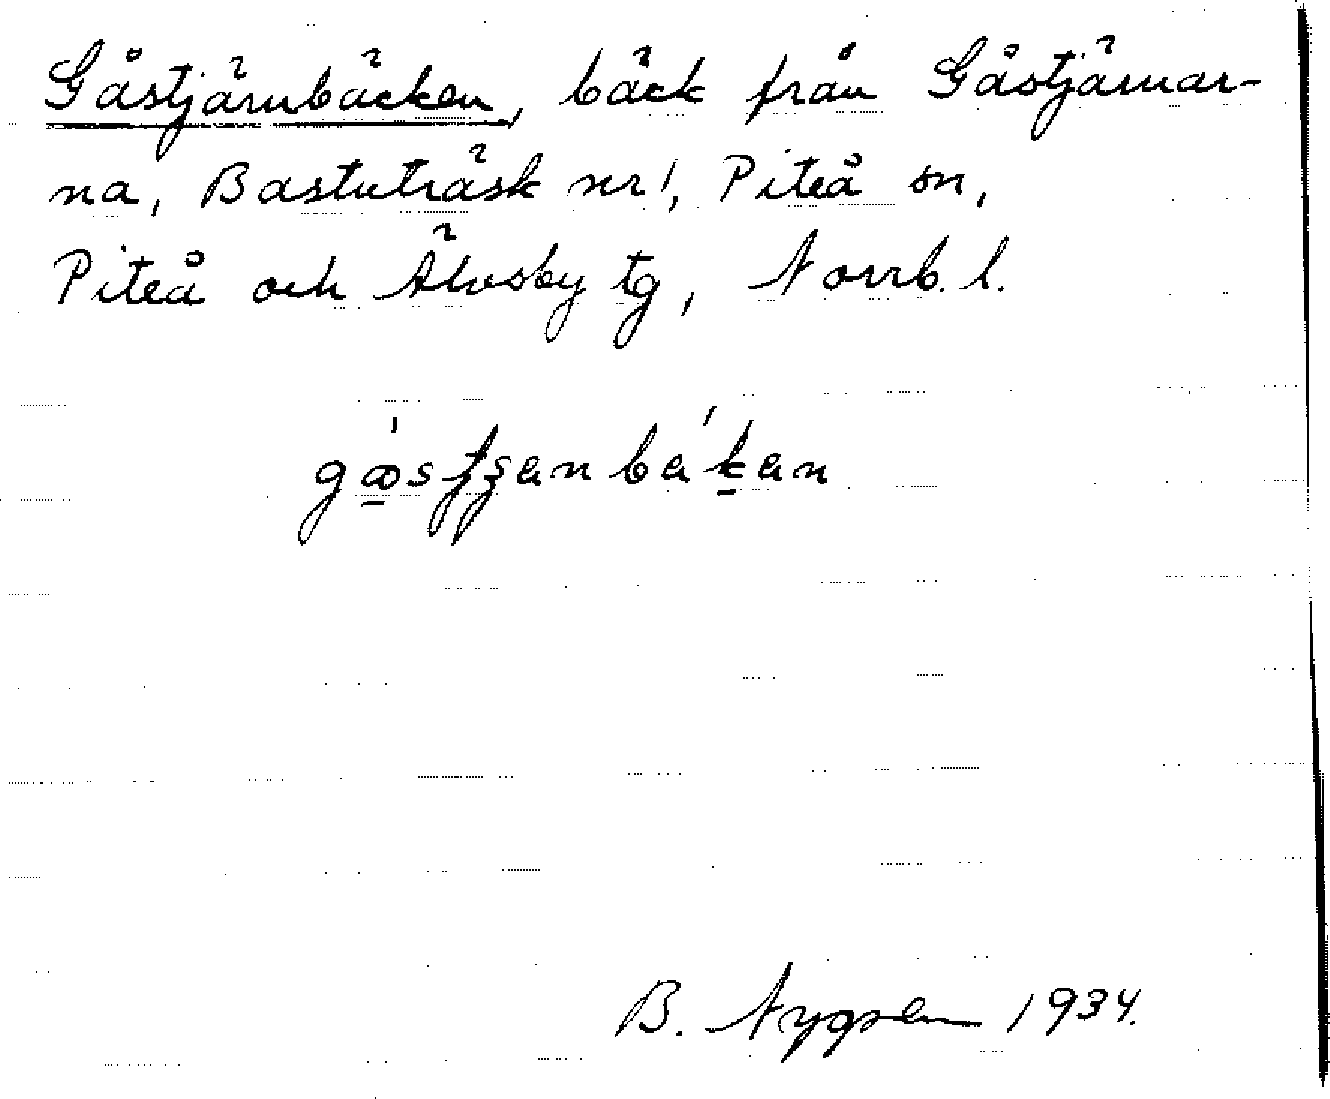 Gåstjärnbäcken, bäck från Gåstjärnar-
na, Bastuträsk nr 1, Piteå sn,
Piteå och Älvsby tg, Norrb. l.
B. Nygren 1934.